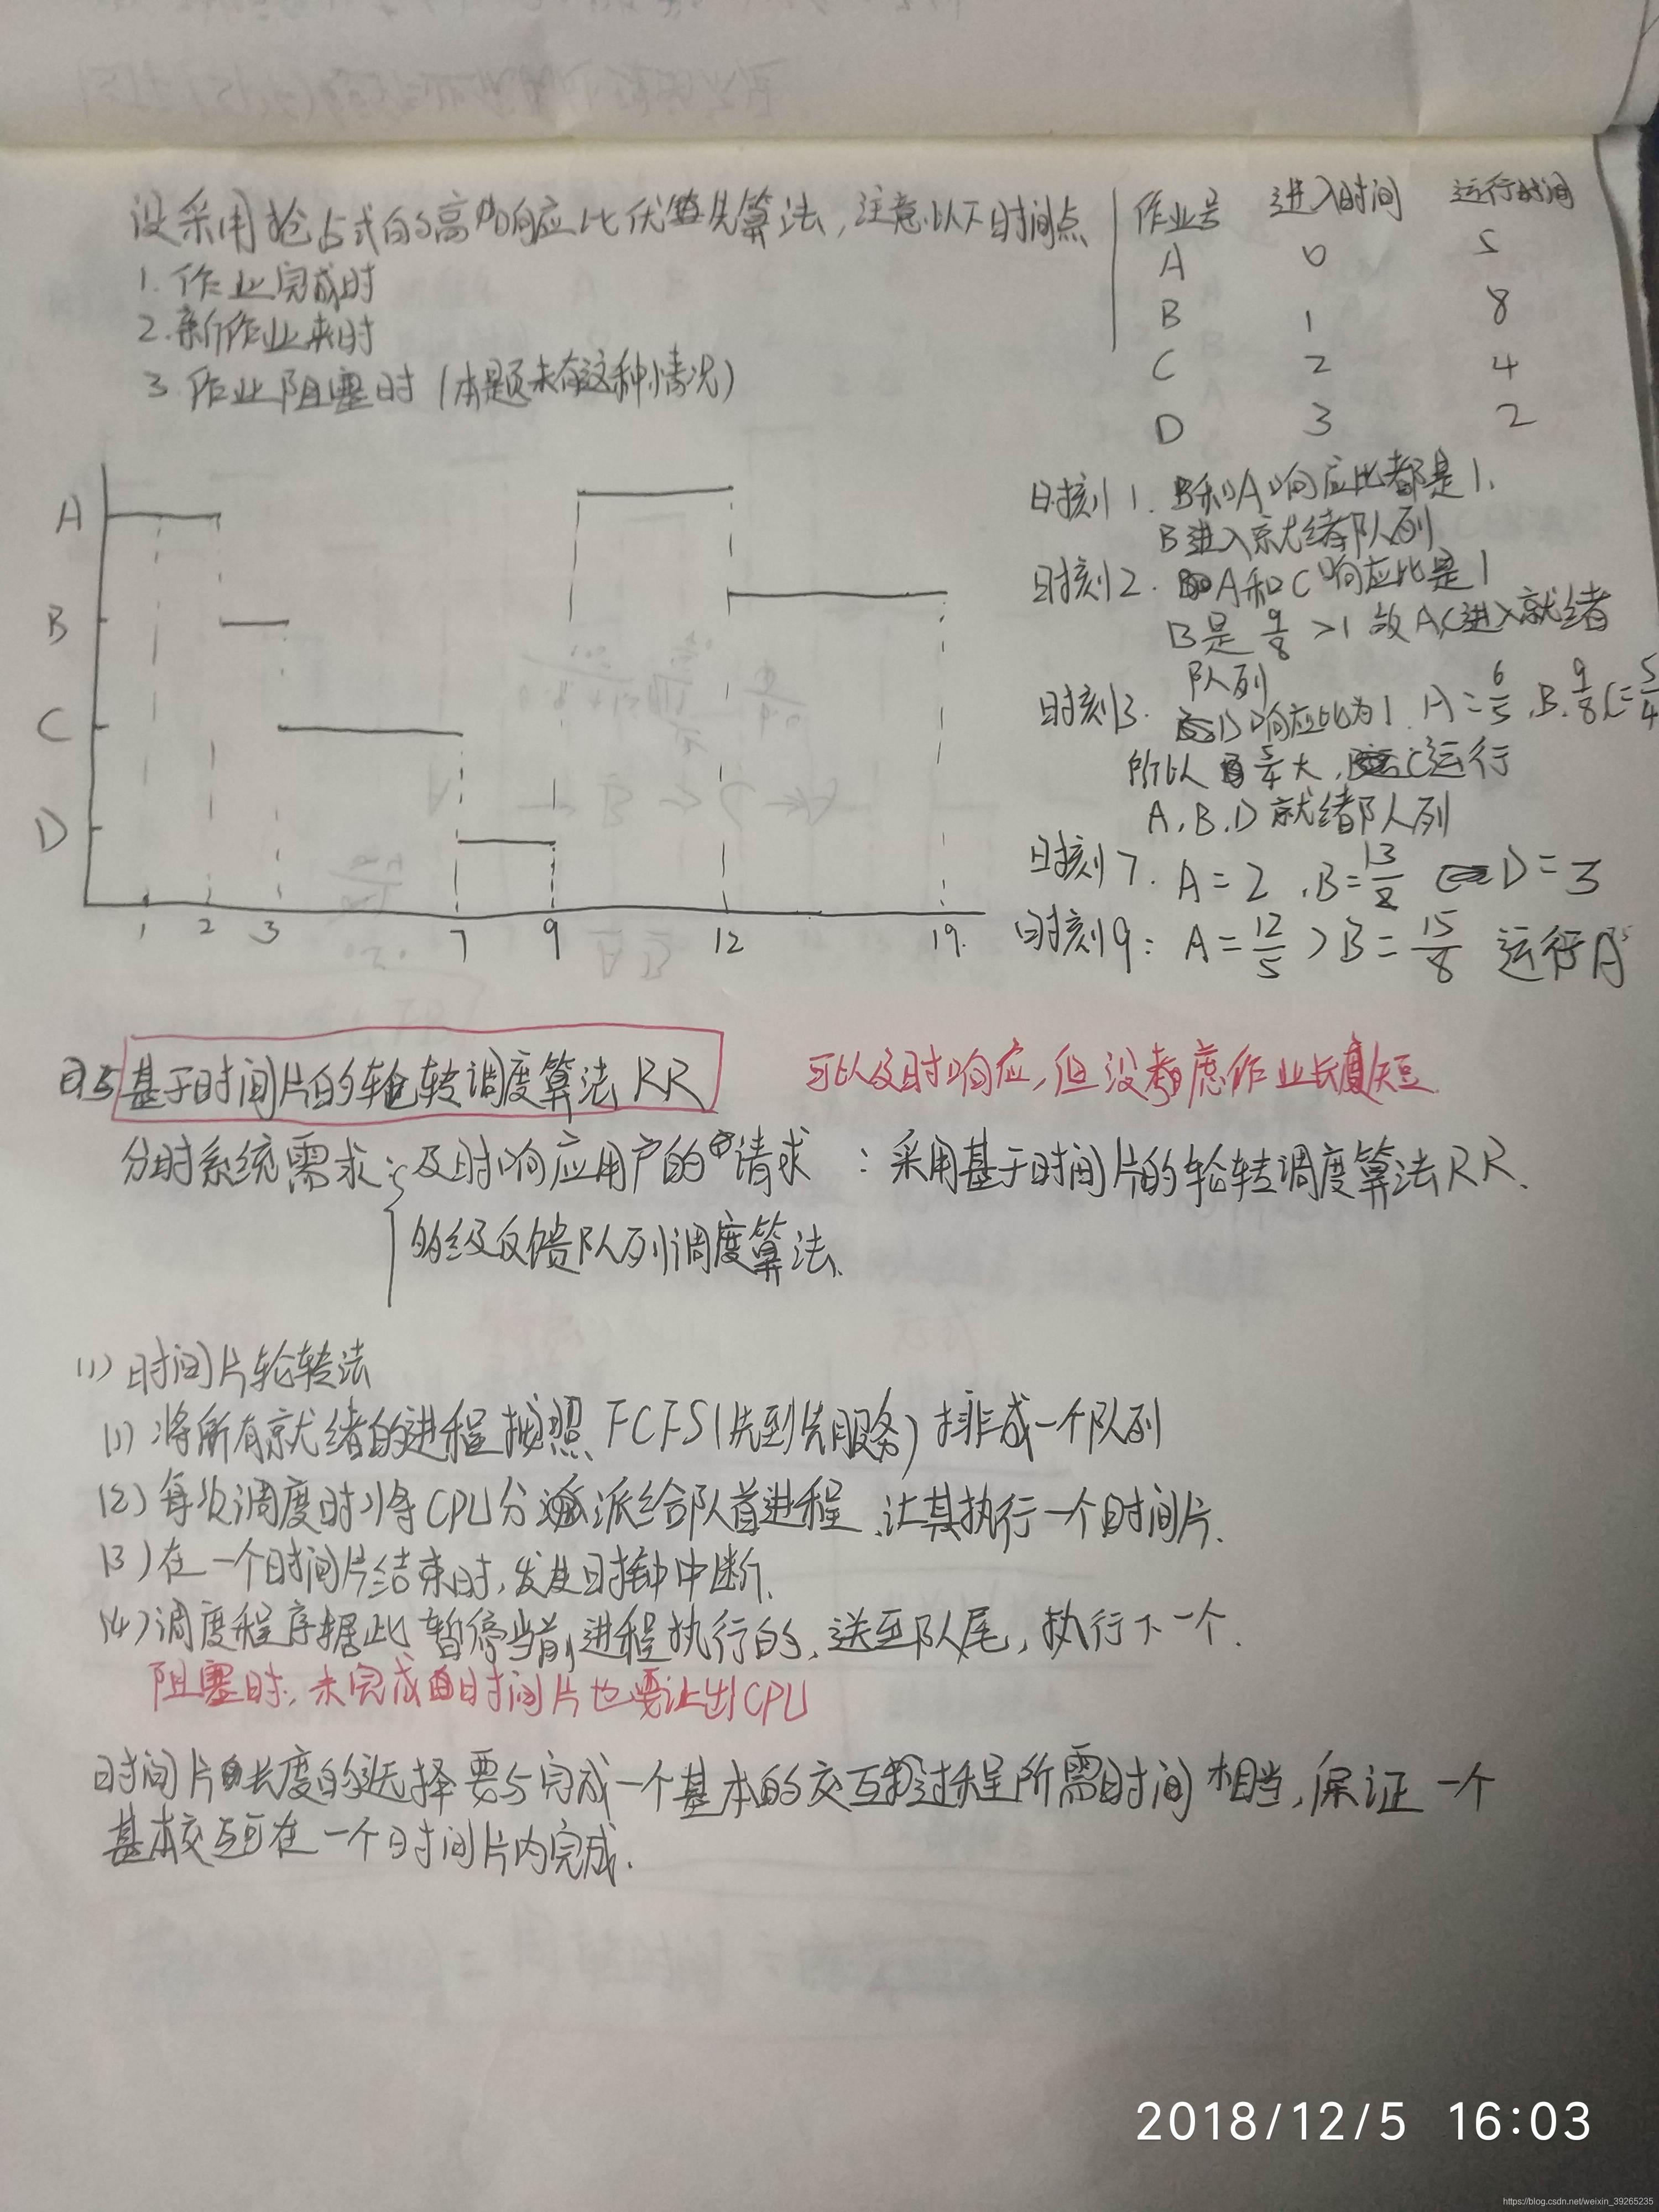 设采用抢占式的高响应比优先算法，注意以下时间点
1. 作业完成时
2. 新作业来时
3. 作业阻塞时（本题未有这种情况）
作业号 进入时间 运行时间
A 0 5
B 1 8
C 2 4
D 3 2
A
B
C
D
1 2 3 7 9 12 19.
时刻1. B和A响应比都是1.
B进入就绪队列
时刻2. A和C响应比是1
B是 9/8 >1 故A,C进入就绪
队列
时刻3. D响应比为1. A=6/5 .B.9/8 C=5/4
所以 5/4 大, C运行
A.B.D 就绪队列
时刻7. A=2 .B=13/8 D=3
时刻9: A=12/5 > B=15/8 运行A
基于时间片的轮转调度算法 RR
可以及时响应,但没考虑作业长度短
分时系统需求: 及时响应用户的请求 : 采用基于时间片的轮转调度算法RR.
的级反馈队列调度算法.
(1) 时间片轮转法
(1) 将所有就绪的进程按照 FCFS(先到先服务) 排成一个队列
(2) 每次调度时将CPU分派给队首进程.让其执行一个时间片.
(3) 在一个时间片结束时,发生时钟中断.
(4) 调度程序据此暂停当前进程执行的.送至队尾,执行下一个.
阻塞时,未完成时间片也要让出CPU
时间片长度的选择要与完成一个基本的交互过程所需时间相当,保证一个
基本交互可在一个时间片内完成.
2018/12/5 16:03
https://blog.csdn.net/weixin_39265235